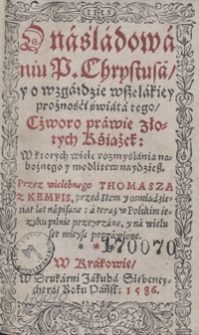 O náśládowá
niu P. Chrystusá/
y o wzgárdzie wszelákiey
prożnośći świátá tego/
Cżworo práwie złotych Kśiążek:
W ktorych wiele rozmyślánia nabożnego y modlitew naydzieß.
Przez wielebnego THOMASZA
z KEMPIS, przed stem y ośmiądzieśiat lat nápisáne: á teraz w Polskim ięzyku pilnie przeyrzáne, y ná wielu
miejsc popráwione.
170070
W Krákowie/
W Drukárni Jákubá Siebeneycherá/ Roku Páńsk: 1586.